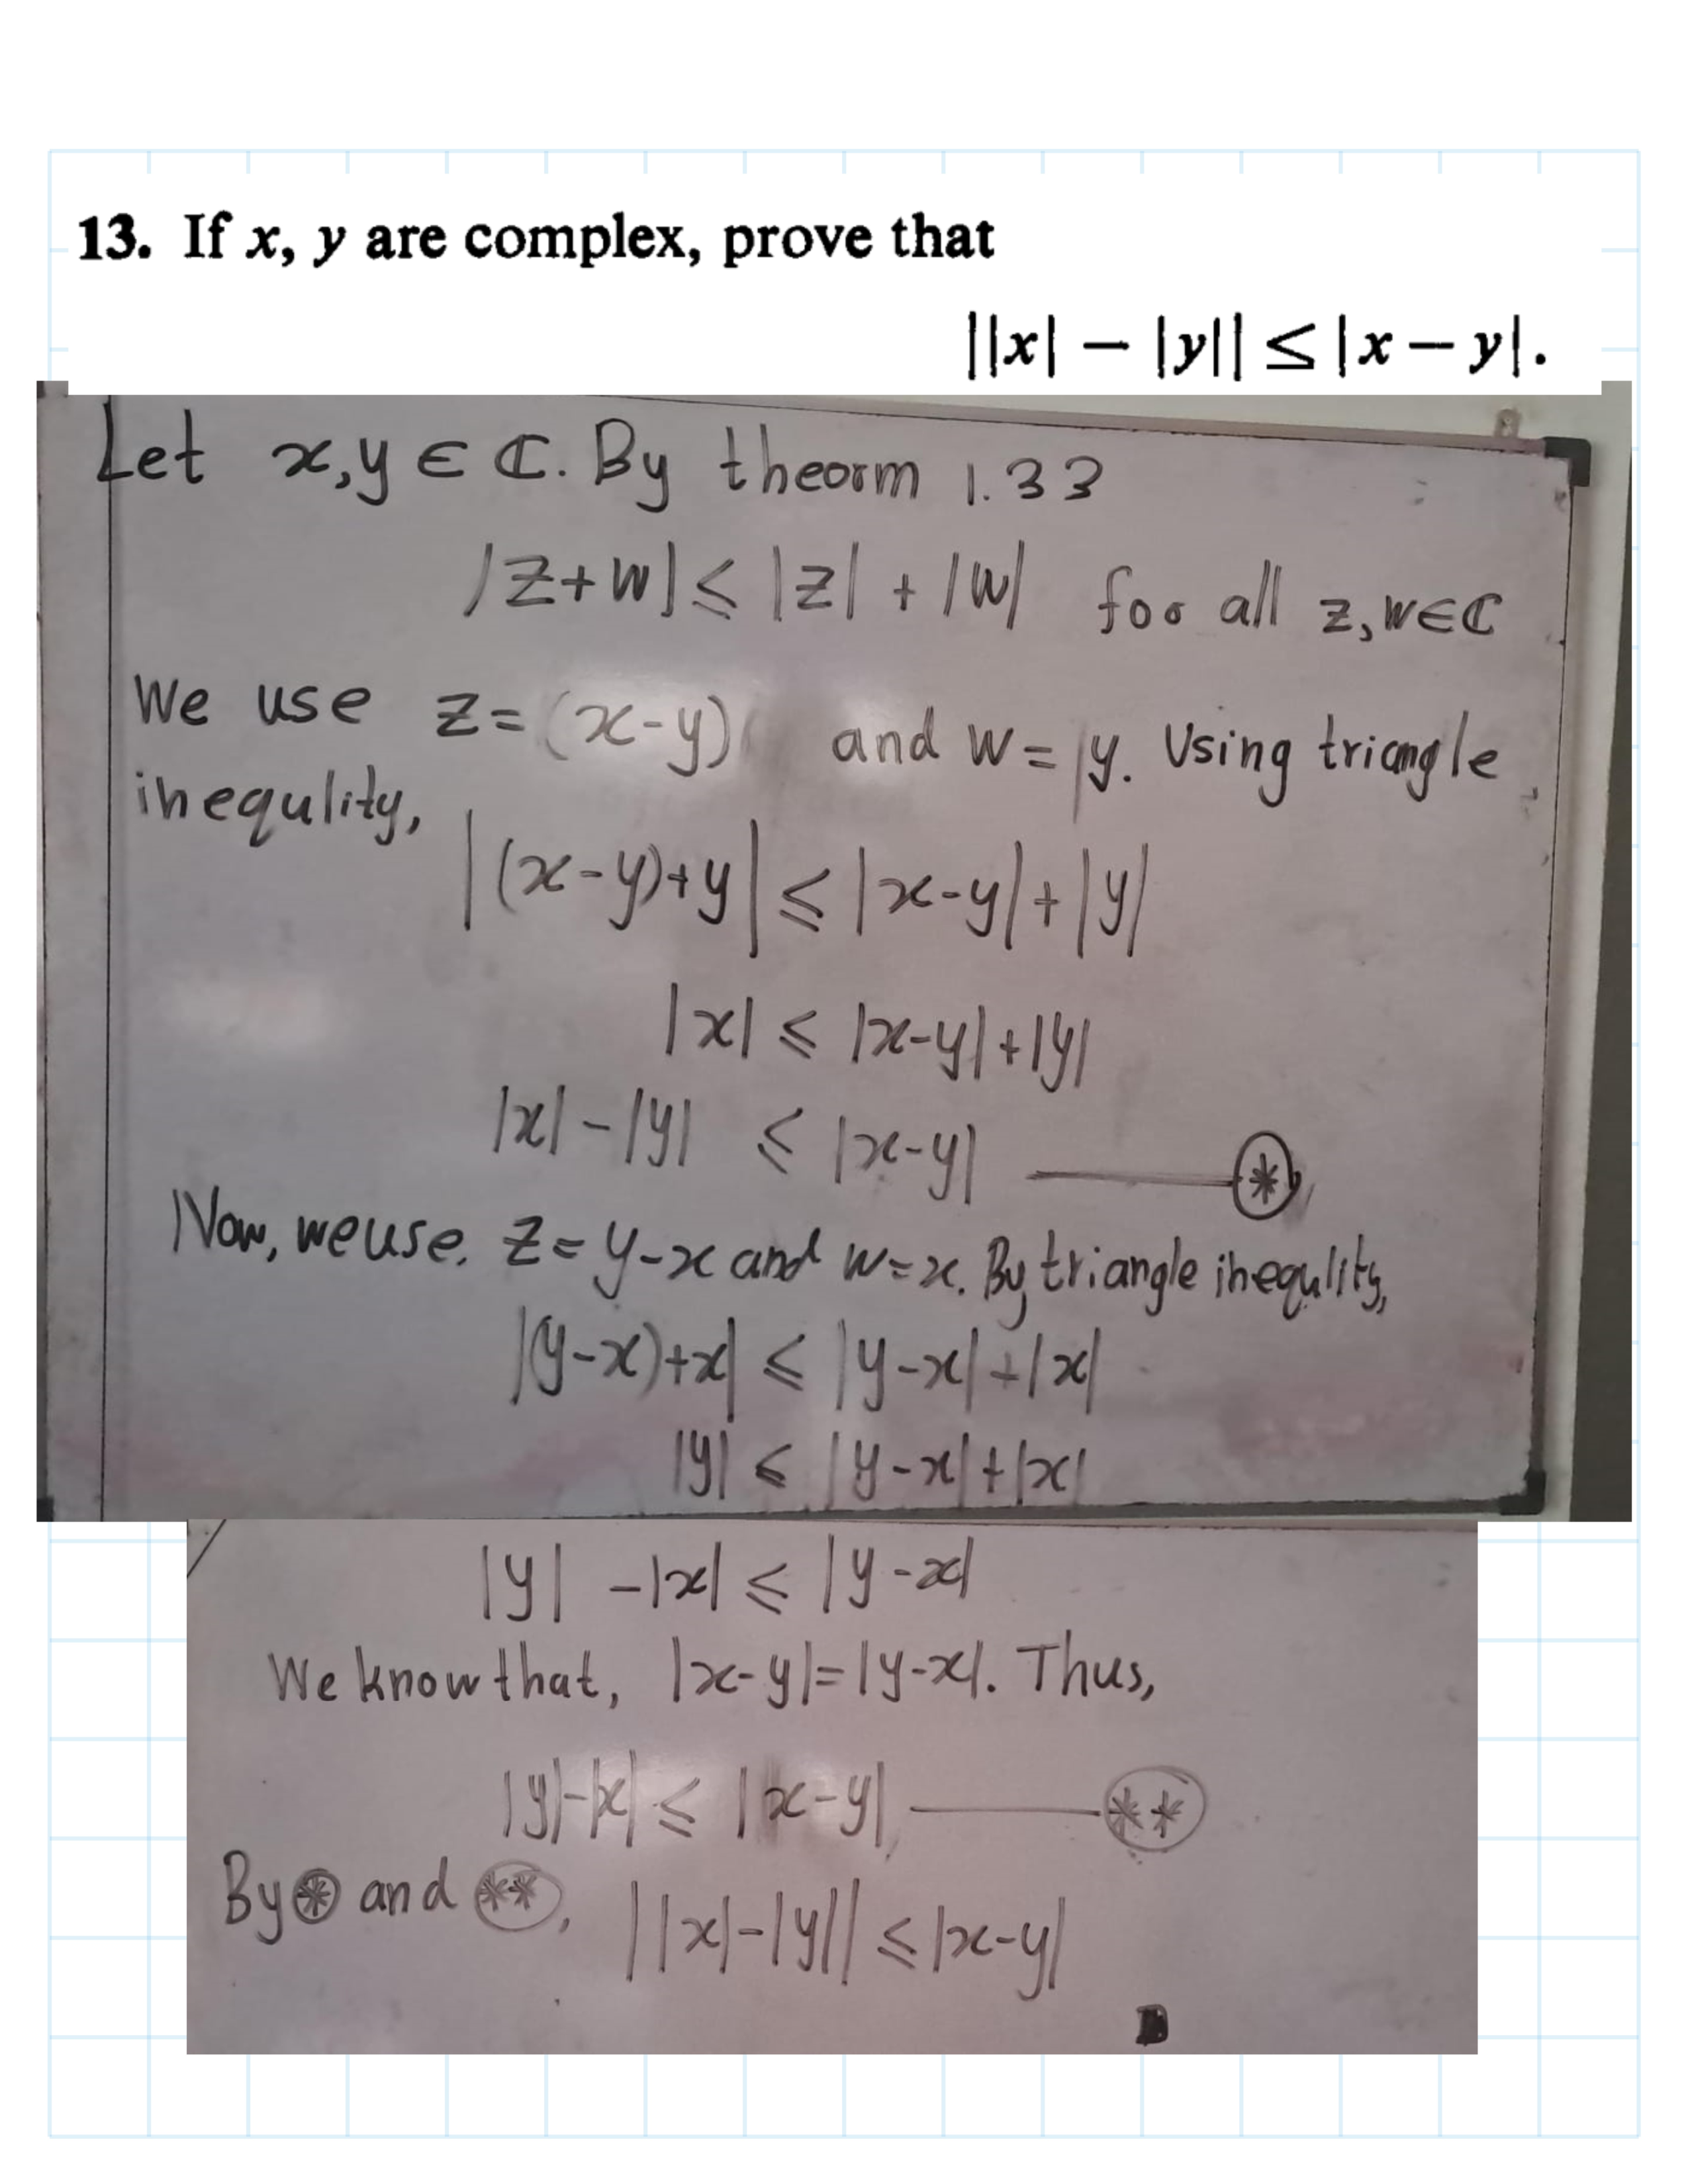 13. If x, y are complex, prove that
||x| − |y|| ≤ |x − y|.
Let x,y ∈ ℂ. By theorm 1.33
|z+w| ≤ |z| + |w| for all z,w∈ℂ
We use z=(x-y) and w= y. Using triangle
inequlity,
|(x-y)+y| ≤ |x-y|+|y|
|x| ≤ |x-y|+|y|
|x|-|y| ≤ |x-y| —— ⊛
Now, we use. z= y-x and w=x. By triangle inequlity,
|(y-x)+x| ≤ |y-x|+|x|
|y| ≤ |y-x|+|x|
|y| -|x| ≤ |y-x|
We know that, |x-y|=|y-x|. Thus,
|y|-|x| ≤ |x-y| —— (**)
By ⊛ and (**), ||x|-|y|| ≤ |x-y|